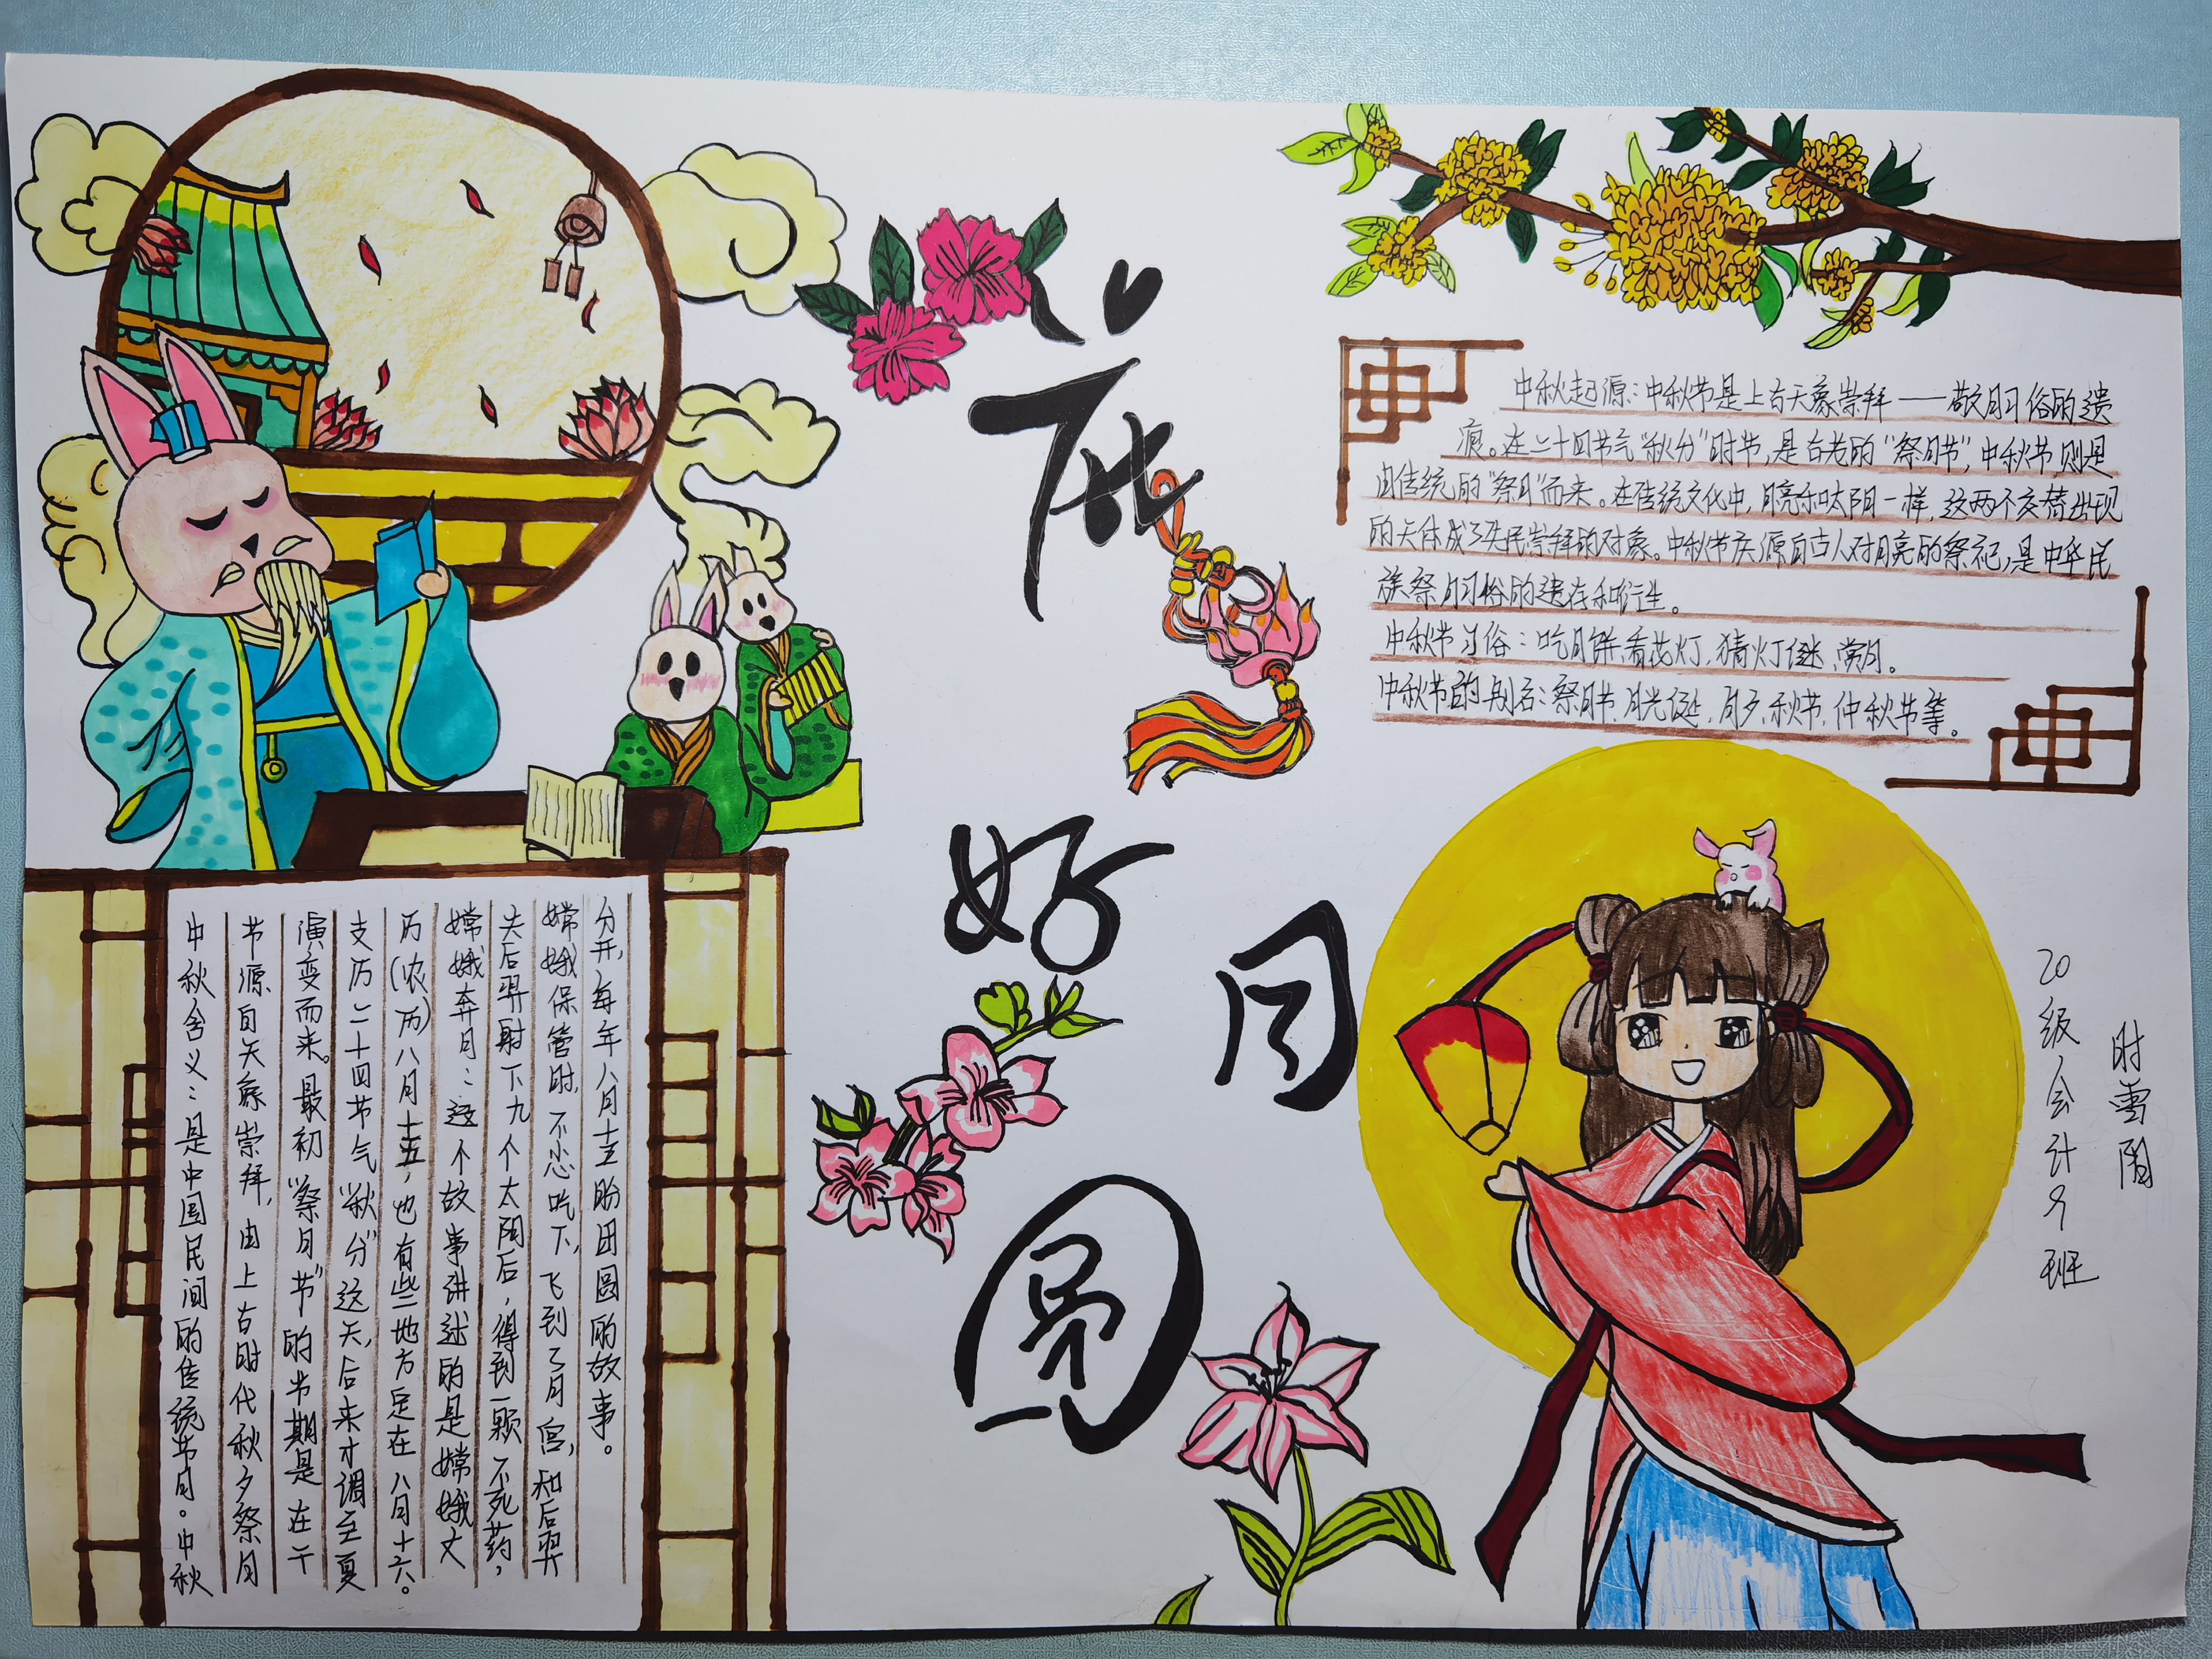 花
好
月
圆
中秋起源：中秋节是上古天象崇拜——敬月习俗的遗
痕。在二十四节气“秋分”时节，是古老的“祭月节”，中秋节则是
由传统的“祭月”而来。在传统文化中，月亮和太阳一样，这两个交替出现
的天体成了先民崇拜的对象。中秋节庆源自古人对月亮的祭祀，是中华民
族祭月习俗的遗存和衍生。
中秋节习俗：吃月饼、看花灯、猜灯谜、赏月。
中秋节的别名：祭月节、月光诞、月夕、秋节、仲秋节等。
中秋含义：是中国民间的传统节日。中秋
节源自天象崇拜，由上古时代秋夕祭月
演变而来。最初“祭月节”的节期是在干
支历二十四节气“秋分”这天，后来才调至夏
历（农历）八月十五，也有些地方定在八月十六。
嫦娥奔月：这个故事讲述的是嫦娥丈
夫后羿射下九个太阳后，得到一颗不死药，
嫦娥保管时，不小心吃下，飞到了月宫，和后羿
分开，每年八月十五盼团圆的故事。
20级会计9班
时雪阳